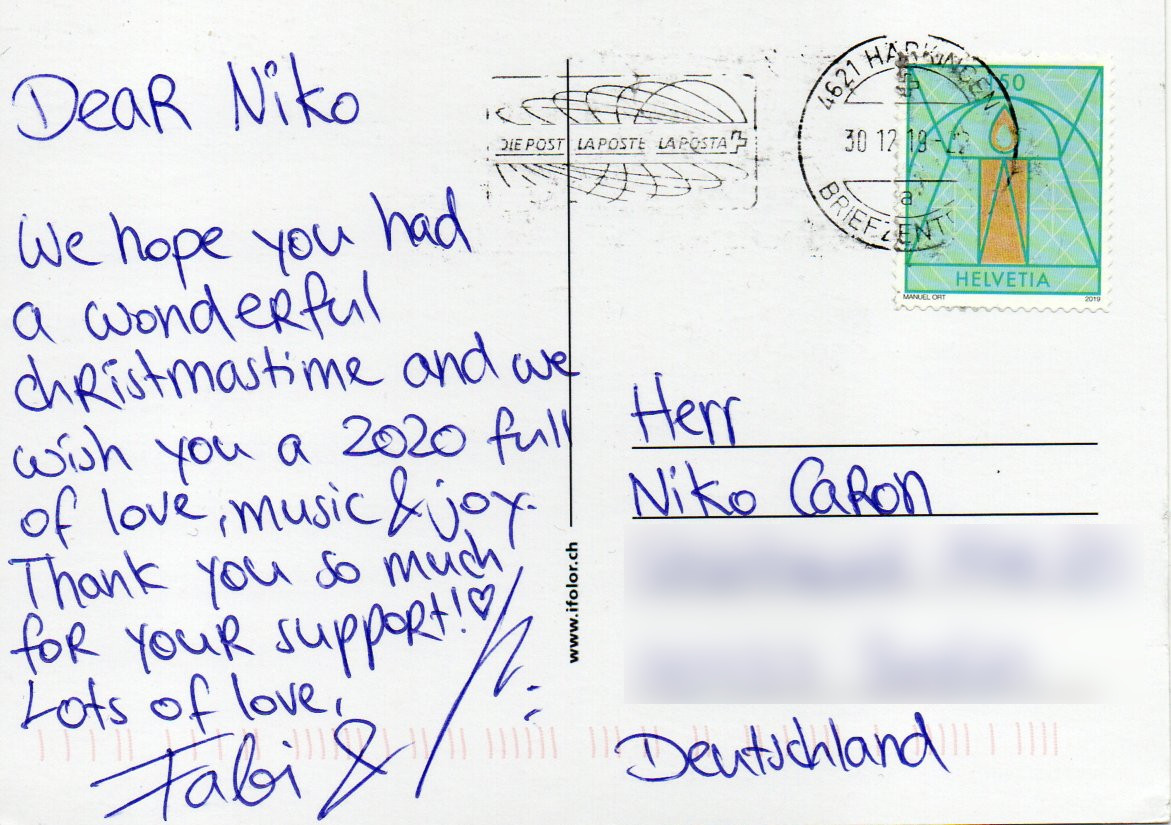 Dear Niko
We hope you had
a wonderful
christmastime and we
wish you a 2020 full
of love, music & joy.
Thank you so much
for your support! ♡
Lots of love,
Fabi &
DIE POST LA POSTE LA POSTA
4621 HÄRKINGEN
30 12 19-22
a
BRIEFZENT
50
HELVETIA
MANUEL ORT 2019
www.ifolor.ch
Herr
Niko Caron
Deutschland